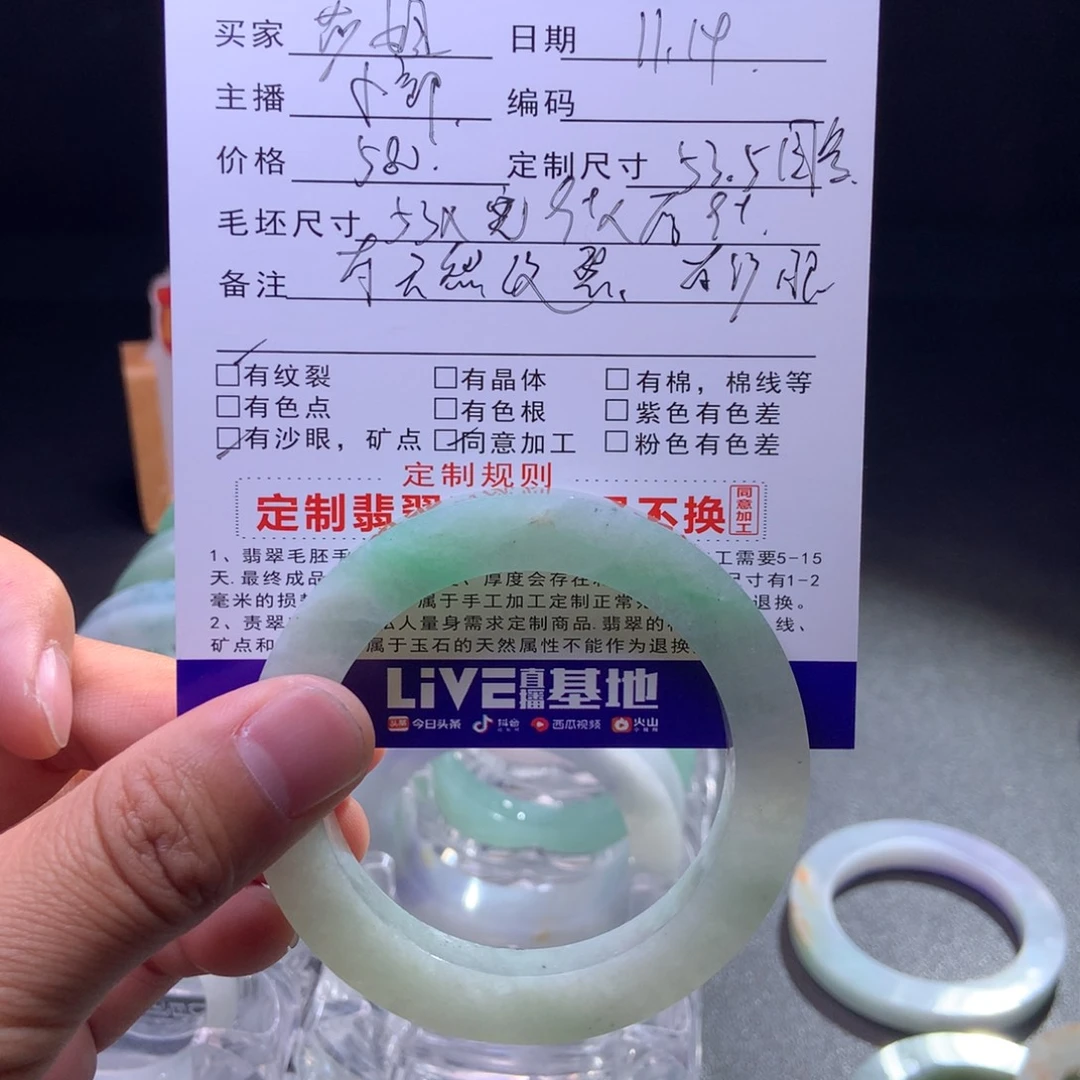 买家 日期 11.14.
主播 编码
价格 580. 定制尺寸 53.5圆
毛坯尺寸 53x宽
备注 有天然纹裂、有沙眼
□有纹裂 □有晶体 □有棉，棉线等
□有色点 □有色根 □紫色有色差
□有沙眼，矿点 □同意加工 □粉色有色差
定制规则
定制翡 不换 同意加工
1、翡翠毛胚手 工需要5-15
天.最终成品 、厚度会存在 尺寸有1-2
毫米的损 属于手工加工定制正常 退换。
2、责翠 人量身需求定制商品.翡翠的 线、
矿点和 属于玉石的天然属性不能作为退换
LiVE直播基地
头条 今日头条 抖音 西瓜视频 火山